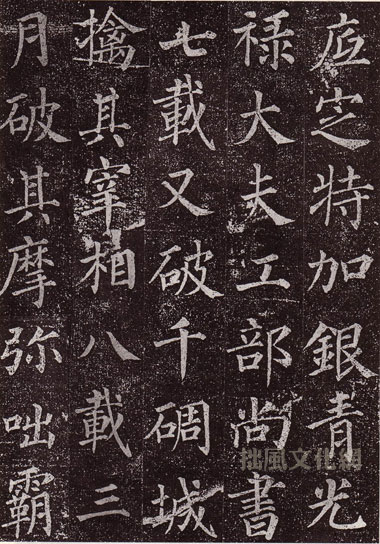 底定特加銀青光
禄大夫工部尚書
七載又破千碉城
擒其宰相八載三
月破其摩弥咄霸
拙風文化網